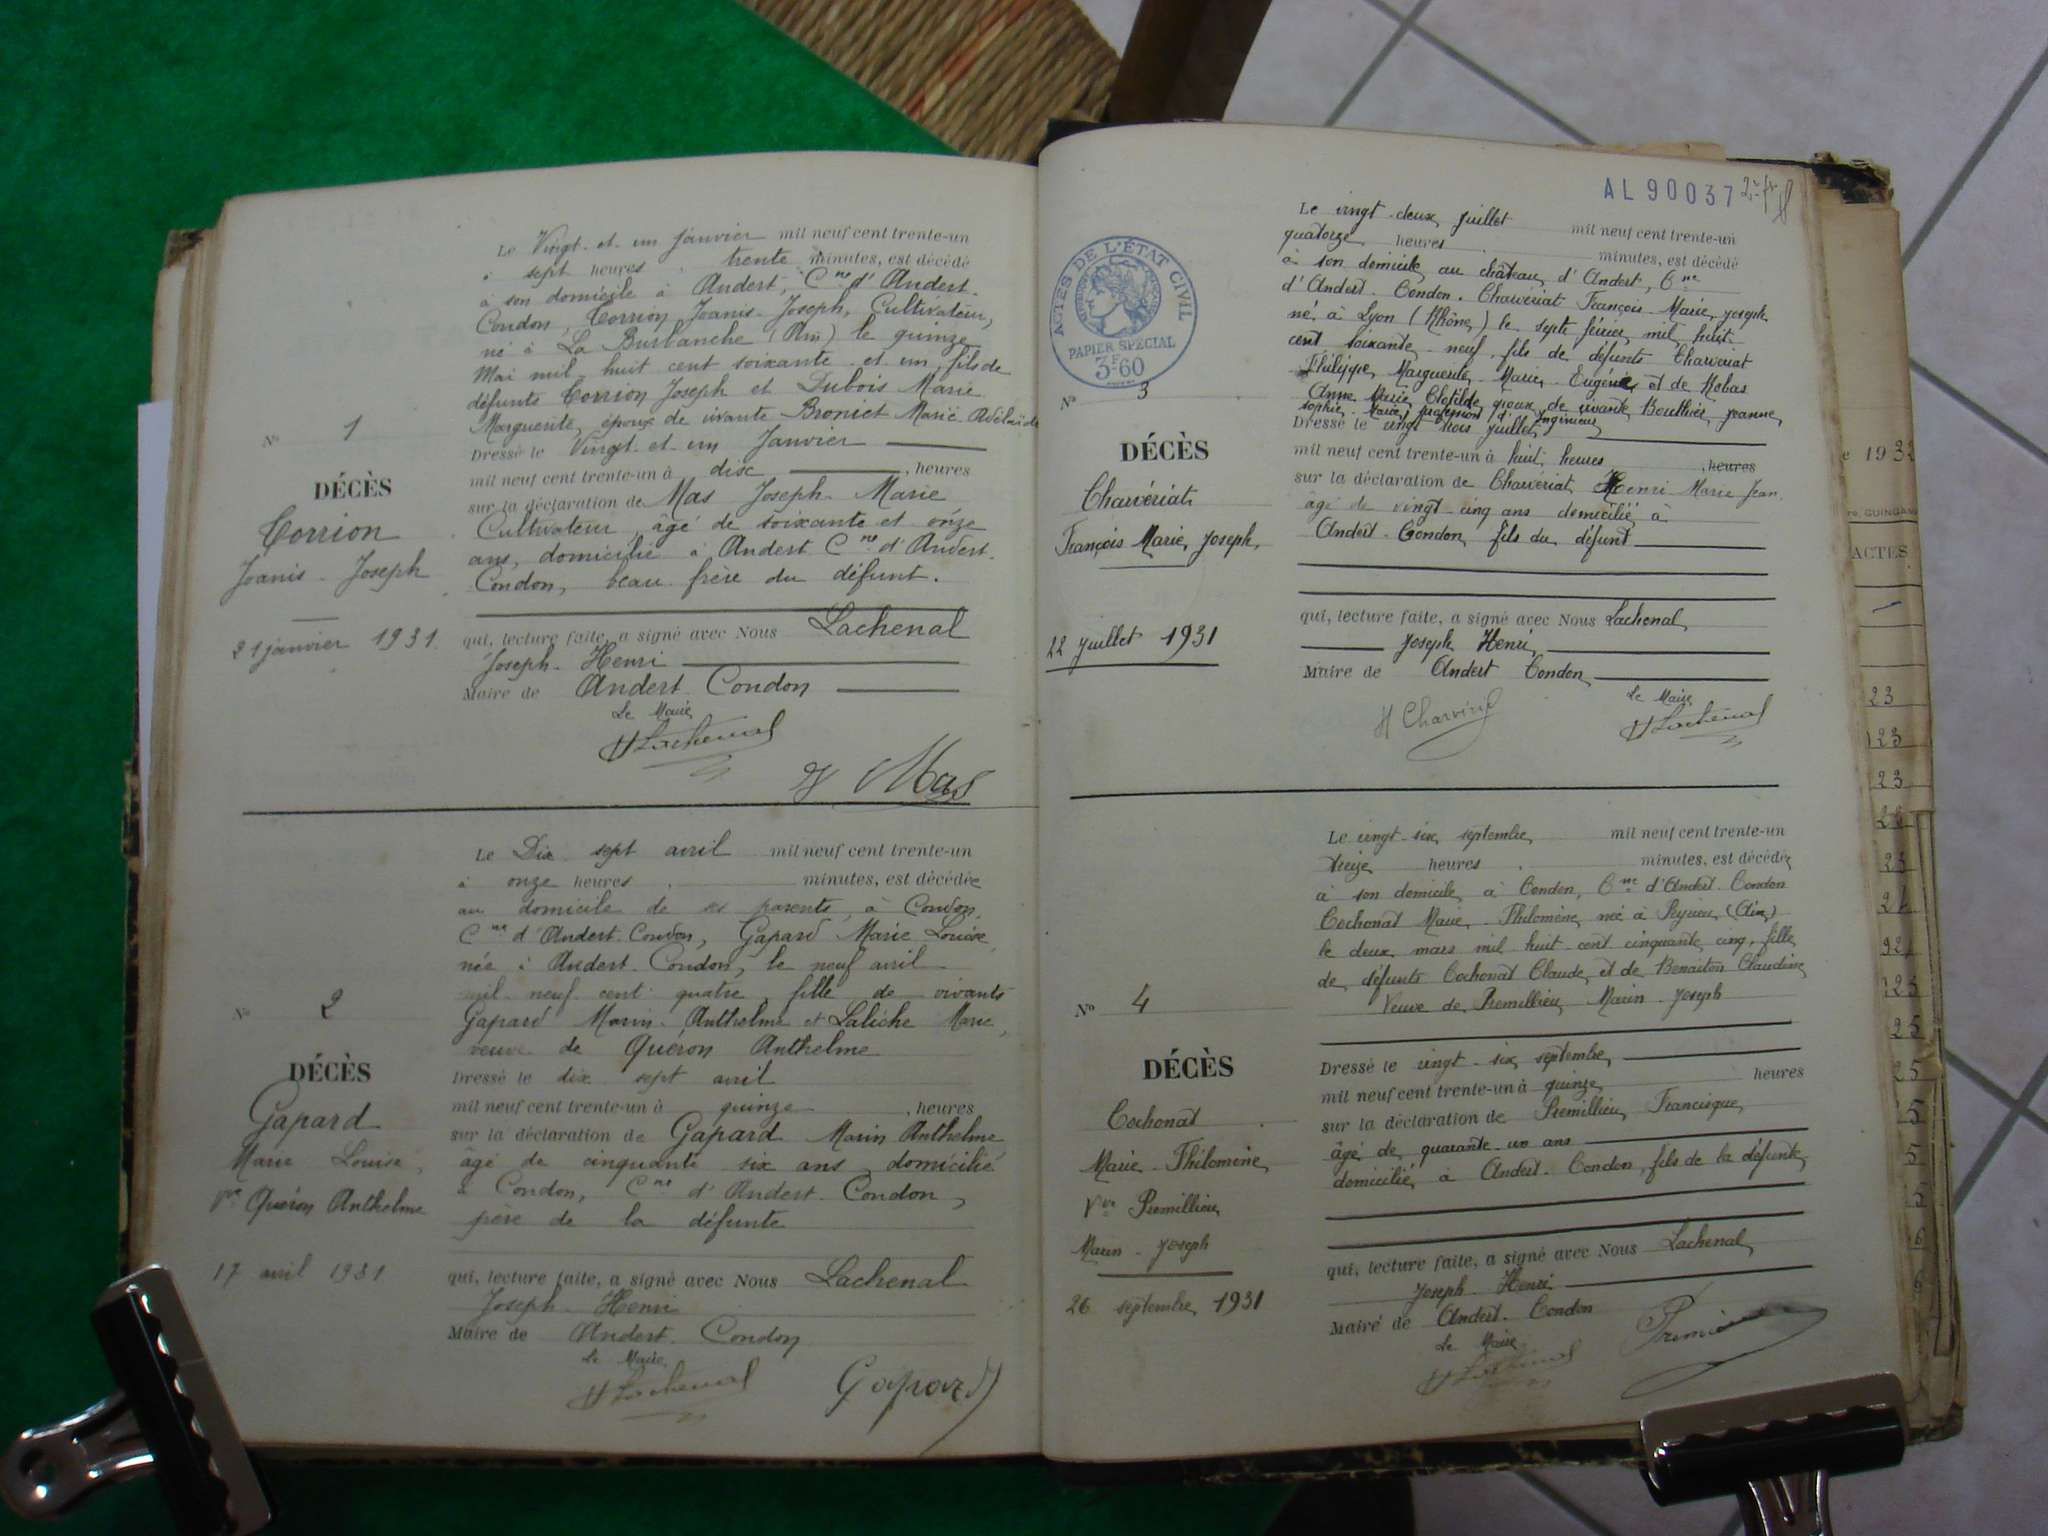 Le Vingt-et-un janvier mil neuf cent trente-un
à sept heures trente minutes, est décédé
à son domicile à Andert, Cne d'Andert-
Condon, Corrion Joanis-Joseph, Cultivateur,
né à La Burbanche (Ain) le quinze
Mai mil huit cent soixante et un, fils de
défunts Corrion Joseph et Dubois Marie
Marguerite, époux de vivante Broniet Marie Adélaïde
Dressé le Vingt-et-un Janvier
mil neuf cent trente-un à dix, heures
sur la déclaration de Mas Joseph-Marie
Cultivateur, âgé de soixante et onze
ans, domicilié à Andert Cne d'Andert-
Condon, beau-frère du défunt.
qui, lecture faite, a signé avec Nous Lachenal
Joseph-Henri
Maire de Andert-Condon
Le Maire
H Lachenal
J Mas
No 1
DÉCÈS
Corrion
Joanis-Joseph
21 janvier 1931.
Le Dix sept avril mil neuf cent trente-un
à onze heures minutes, est décédée
au domicile de ses parents, à Condon,
Cne d'Andert-Condon, Gapard Marie Louise,
née à Andert-Condon, le neuf avril
mil neuf cent quatre, fille de vivants
Gapard Marin-Anthelme et Laliche Marie,
veuve de Quéron Anthelme
Dressé le dix sept avril
mil neuf cent trente-un à quinze, heures
sur la déclaration de Gapard Marin Anthelme
âgé de cinquante six ans, domicilié
à Condon, Cne d'Andert-Condon,
père de la défunte
qui, lecture faite, a signé avec Nous Lachenal
Joseph-Henri
Maire de Andert-Condon
Le Maire
H Lachenal
Gapard
No 2
DÉCÈS
Gapard
Marie Louise,
Vve Quéron Anthelme
17 avril 1931
AL 90037
ACTES DE L'ÉTAT CIVIL
PAPIER SPÉCIAL
3F60
Le vingt-deux juillet mil neuf cent trente-un
quatorze heures minutes, est décédé
à son domicile au château d'Andert, Cne
d'Andert-Condon. Charvériat François Marie, Joseph,
né à Lyon (Rhône) le sept février mil huit
cent soixante-neuf, fils de défunts Charvériat
Philippe, Marguerite, Marie-Eugénie et de Robas
Anne Marie Clotilde, époux de vivante Bouthier Jeanne,
Sophie-Marie, profession d'Ingénieur
Dressé le vingt trois juillet
mil neuf cent trente-un à huit heures, heures
sur la déclaration de Charvériat Henri Marie Jean
âgé de vingt-cinq ans domicilié à
Andert-Condon, fils du défunt
qui, lecture faite, a signé avec Nous Lachenal
Joseph Henri
Maire de Andert Condon
Le Maire
H Lachenal
No 3
DÉCÈS
Charvériat
François Marie, Joseph,
22 juillet 1931
Le vingt-six septembre mil neuf cent trente-un
treize heures minutes, est décédée
à son domicile à Condon, Cne d'Andert-Condon
Cochonat Marie-Philomène, née à Peyrieu (Ain)
le deux mars mil huit cent cinquante cinq, fille
de défunts Cochonat Claude, et de Benaiton Claudine
Veuve de Premillieu Marin-Joseph
Dressé le vingt-six septembre
mil neuf cent trente-un à quinze heures
sur la déclaration de Premillieu Francisque,
âgé de quarante un ans
domicilié à Andert-Condon, fils de la défunte
qui, lecture faite, a signé avec Nous Lachenal
Joseph-Henri
Maire de Andert-Condon
Le Maire
H Lachenal
No 4
DÉCÈS
Cochonat
Marie-Philomène,
Vve Premillieu
Marin-Joseph
26 septembre 1931
1932
ACTES